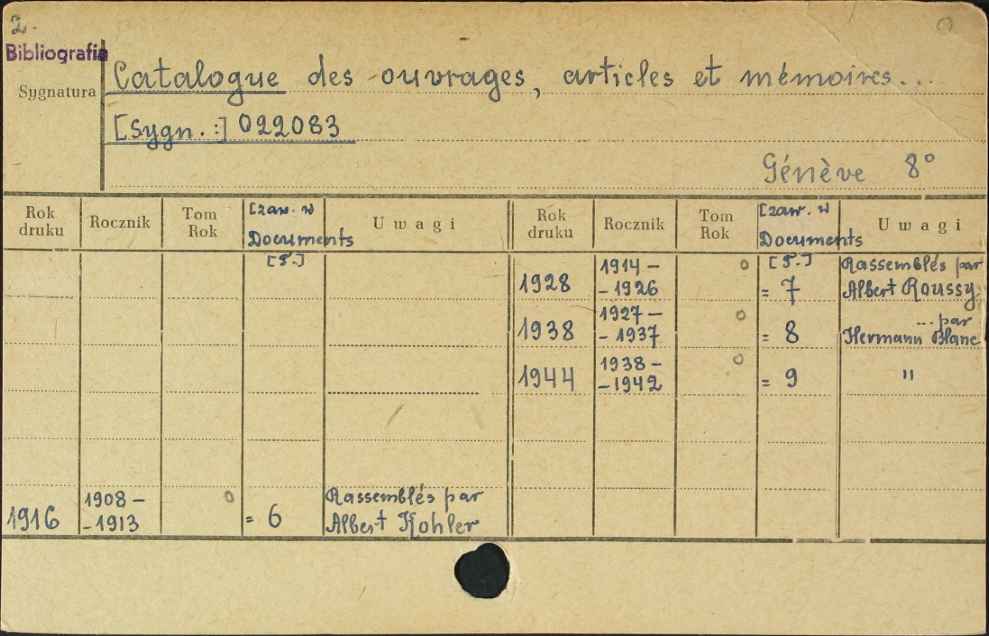 2.
Bibliografia
Sygnatura
Catalogue des ouvrages, articles et mémoires...
[Sygn.:] 022083
Génève 8°
Rok druku Rocznik Tom Rok [zaw. w Documents U w a g i
[T.]
1916 1908 - - 1913 o = 6 Rassemblés par
Albert Kohler
Rok druku Rocznik Tom Rok [zaw. w Documents U w a g i
[T.]
1928 1914 - - 1926 o = 7 Rassemblés par
Albert Roussy.
1938 1927 - - 1937 o = 8 ... par
Hermann Blanc
1944 1938 - - 1942 o = 9 "